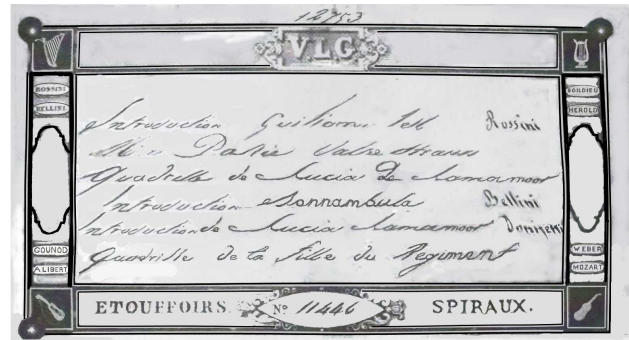 12753
VLG
ROSSINI
BELLINI
BOILDIEU
HEROLD
Introduction Guillaume tell Rossini
Valse Strauss
Quadrille de Lucia De Lamarmoor
Introduction Sonnambula Bellini
Introduction de Lucia Lamarmoor Donizetti
Quadrille de la fille du Regiment
GOUNOD
ALIBERT
WEBER
MOZART
ETOUFFOIRS. Nº 11446 SPIRAUX.